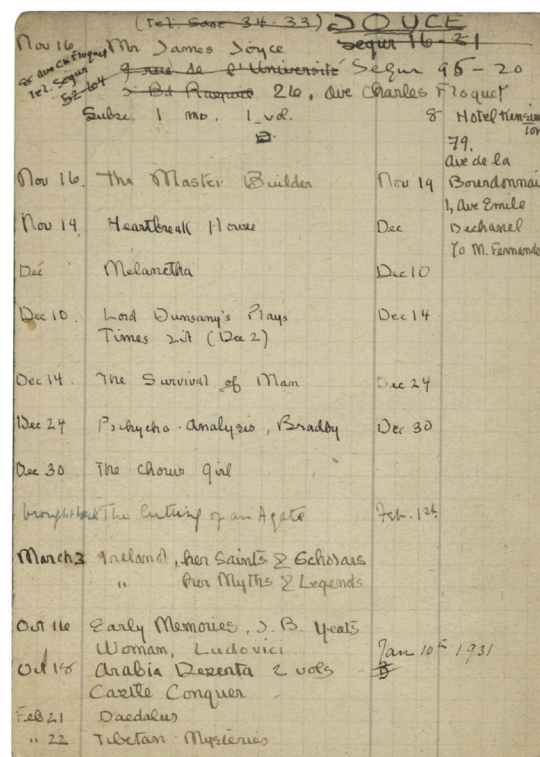 (Tel. Saxe 34-33) JOYCE
Nov 16 Mr James Joyce Segur 16-21
8 ave Ch Floquet
Tel. Segur
52-64
9 rue de l'Université Segur 95-20
5 Bd Raspail 26, Ave Charles Floquet
Subsc. 1 mo. 1 vol. 8 Hotel
2
79.
ave de la
Nov 16. The Master Builder Nov 19 Bourdonnai
1, Ave Emile
Nov 19. Heartbreak House Dec Dechanel
% M. Fernande
Dec Melanctha Dec 10
Dec 10. Lord Dunsany's Plays Dec 14
Times Lit (Dec 2)
Dec 14. The Survival of Man Dec 24
Dec 24 Psychycho-analysis, Bradby Dec 30
Dec 30 The Chorus Girl
brought back The Cutting of an Agate Feb. 1st
March 3 Ireland, her Saints & Scholars
" her Myths & Legends
Oct 16 Early Memories, J. B. Yeats
Woman, Ludovici Jan 10th 1931
Oct 18 Arabia Deserta 2 vols
Castle Conquer
Feb 21 Daedalus
" 22 Tibetan Mysteries